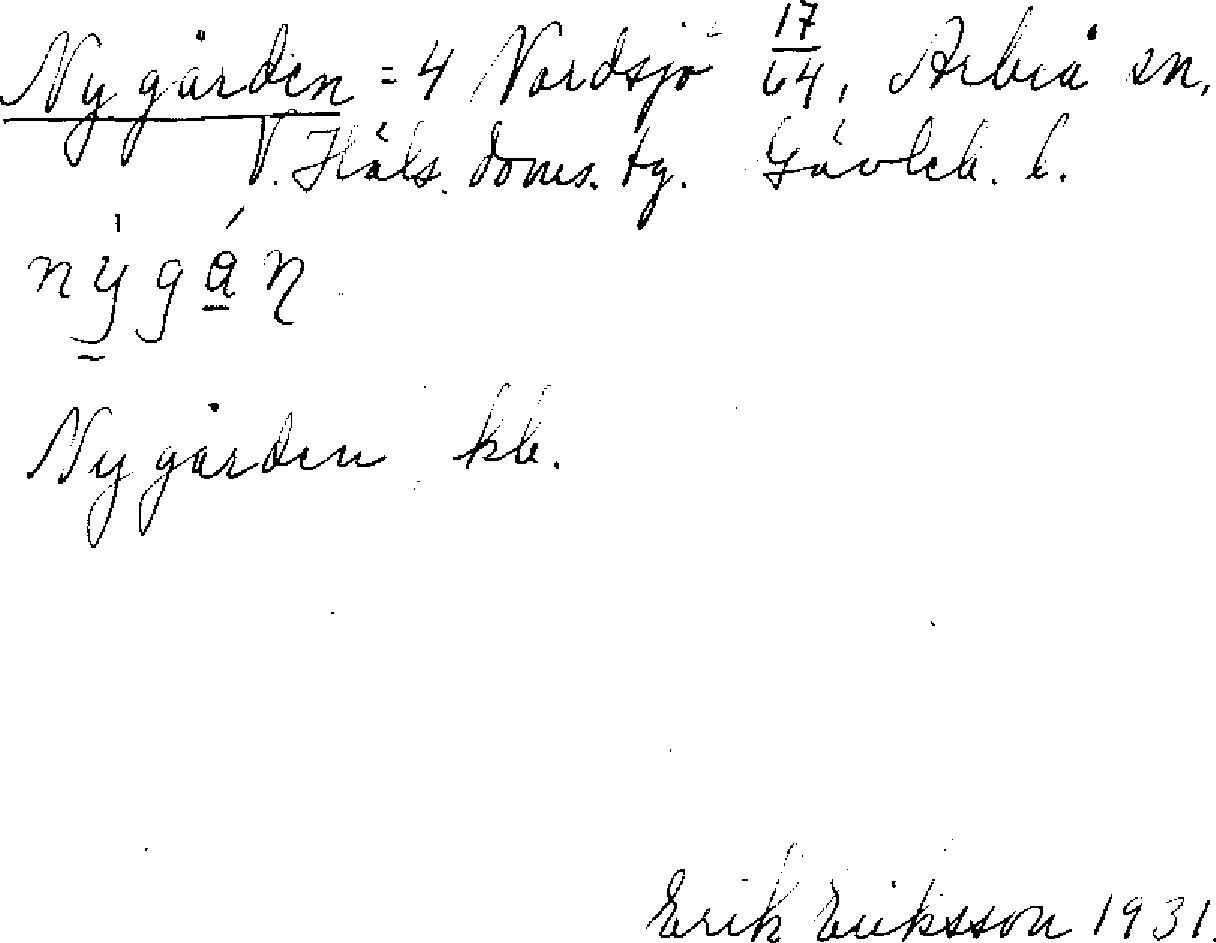 Nygården = 4 Nordsjö 17/64, Arbrå sn,
V. Häls. doms. tg. Gävleb. l.
nỳgán
Nygården kb.
Erik Eriksson 1931.